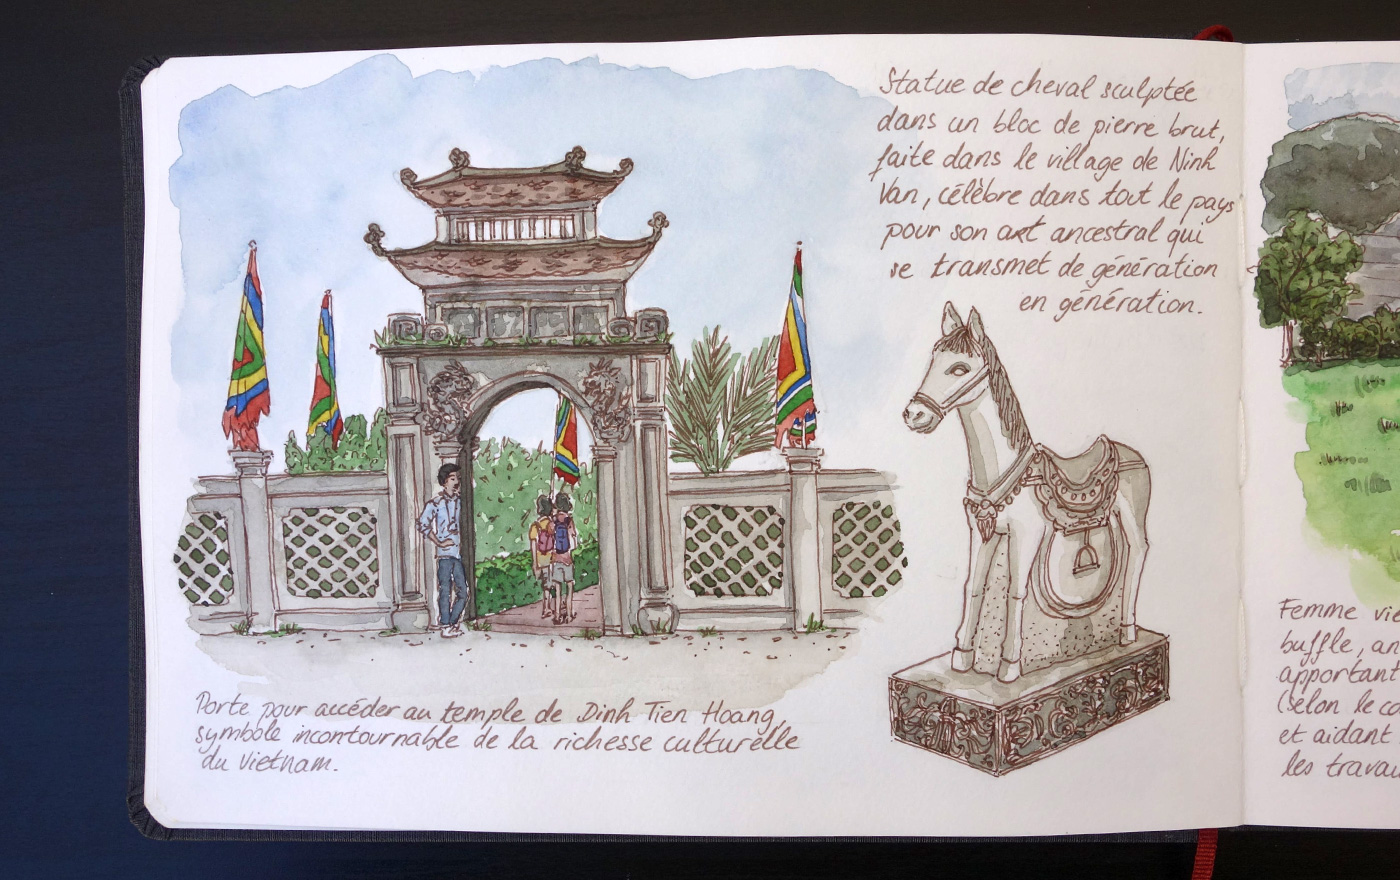 Statue de cheval sculptée
dans un bloc de pierre brut,
faite dans le village de Ninh
Van, célèbre dans tout le pays
pour son art ancestral qui
se transmet de génération
en génération.
Porte pour accéder au temple de Dinh Tien Hoang,
symbole incontournable de la richesse culturelle
du Vietnam.
Femme
buffle,
apportant
(selon le
et aidant
les